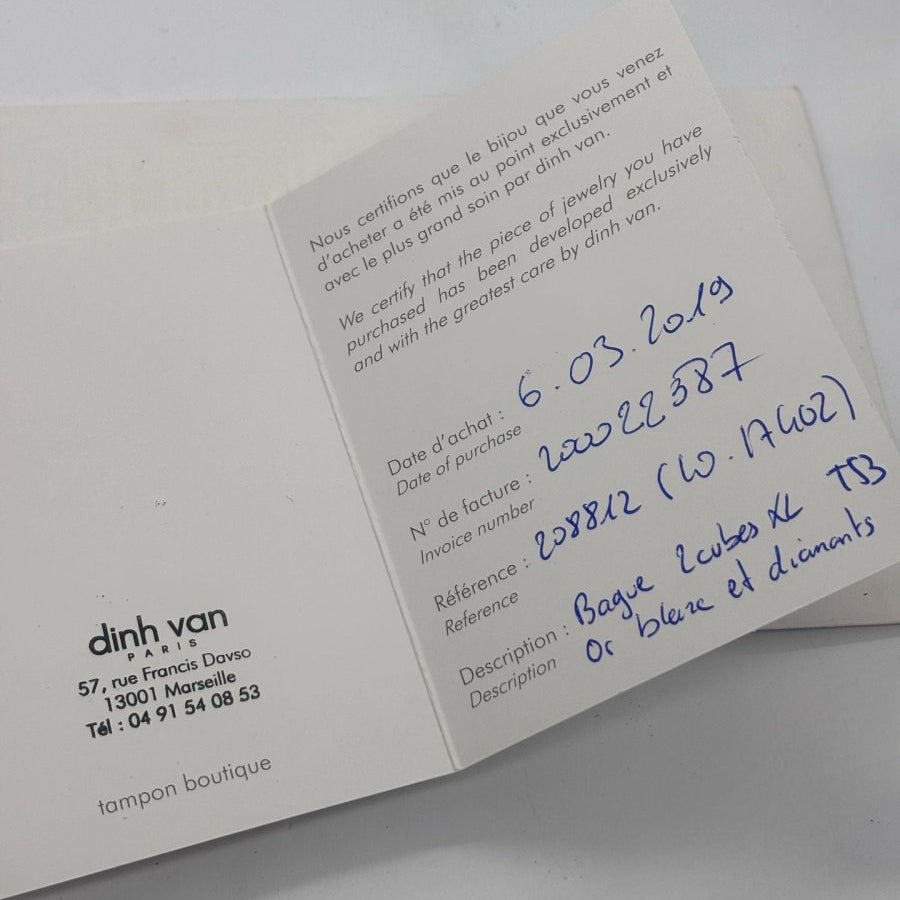 Nous certifions que le bijou que vous venez
d'acheter a été mis au point exclusivement et
avec le plus grand soin par dinh van.
We certify that the piece of jewelry you have
purchased has been developed exclusively
and with the greatest care by dinh van.
Date d'achat : 6.03.2019
Date of purchase
N° de facture : 200022387
Invoice number
Référence : 208812
Reference
Description : Bague 2 cubes XL T53
Description Or et diamants
dinh van
PARIS
57, rue Francis Davso
13001 Marseille
Tél : 04 91 54 08 53
tampon boutique